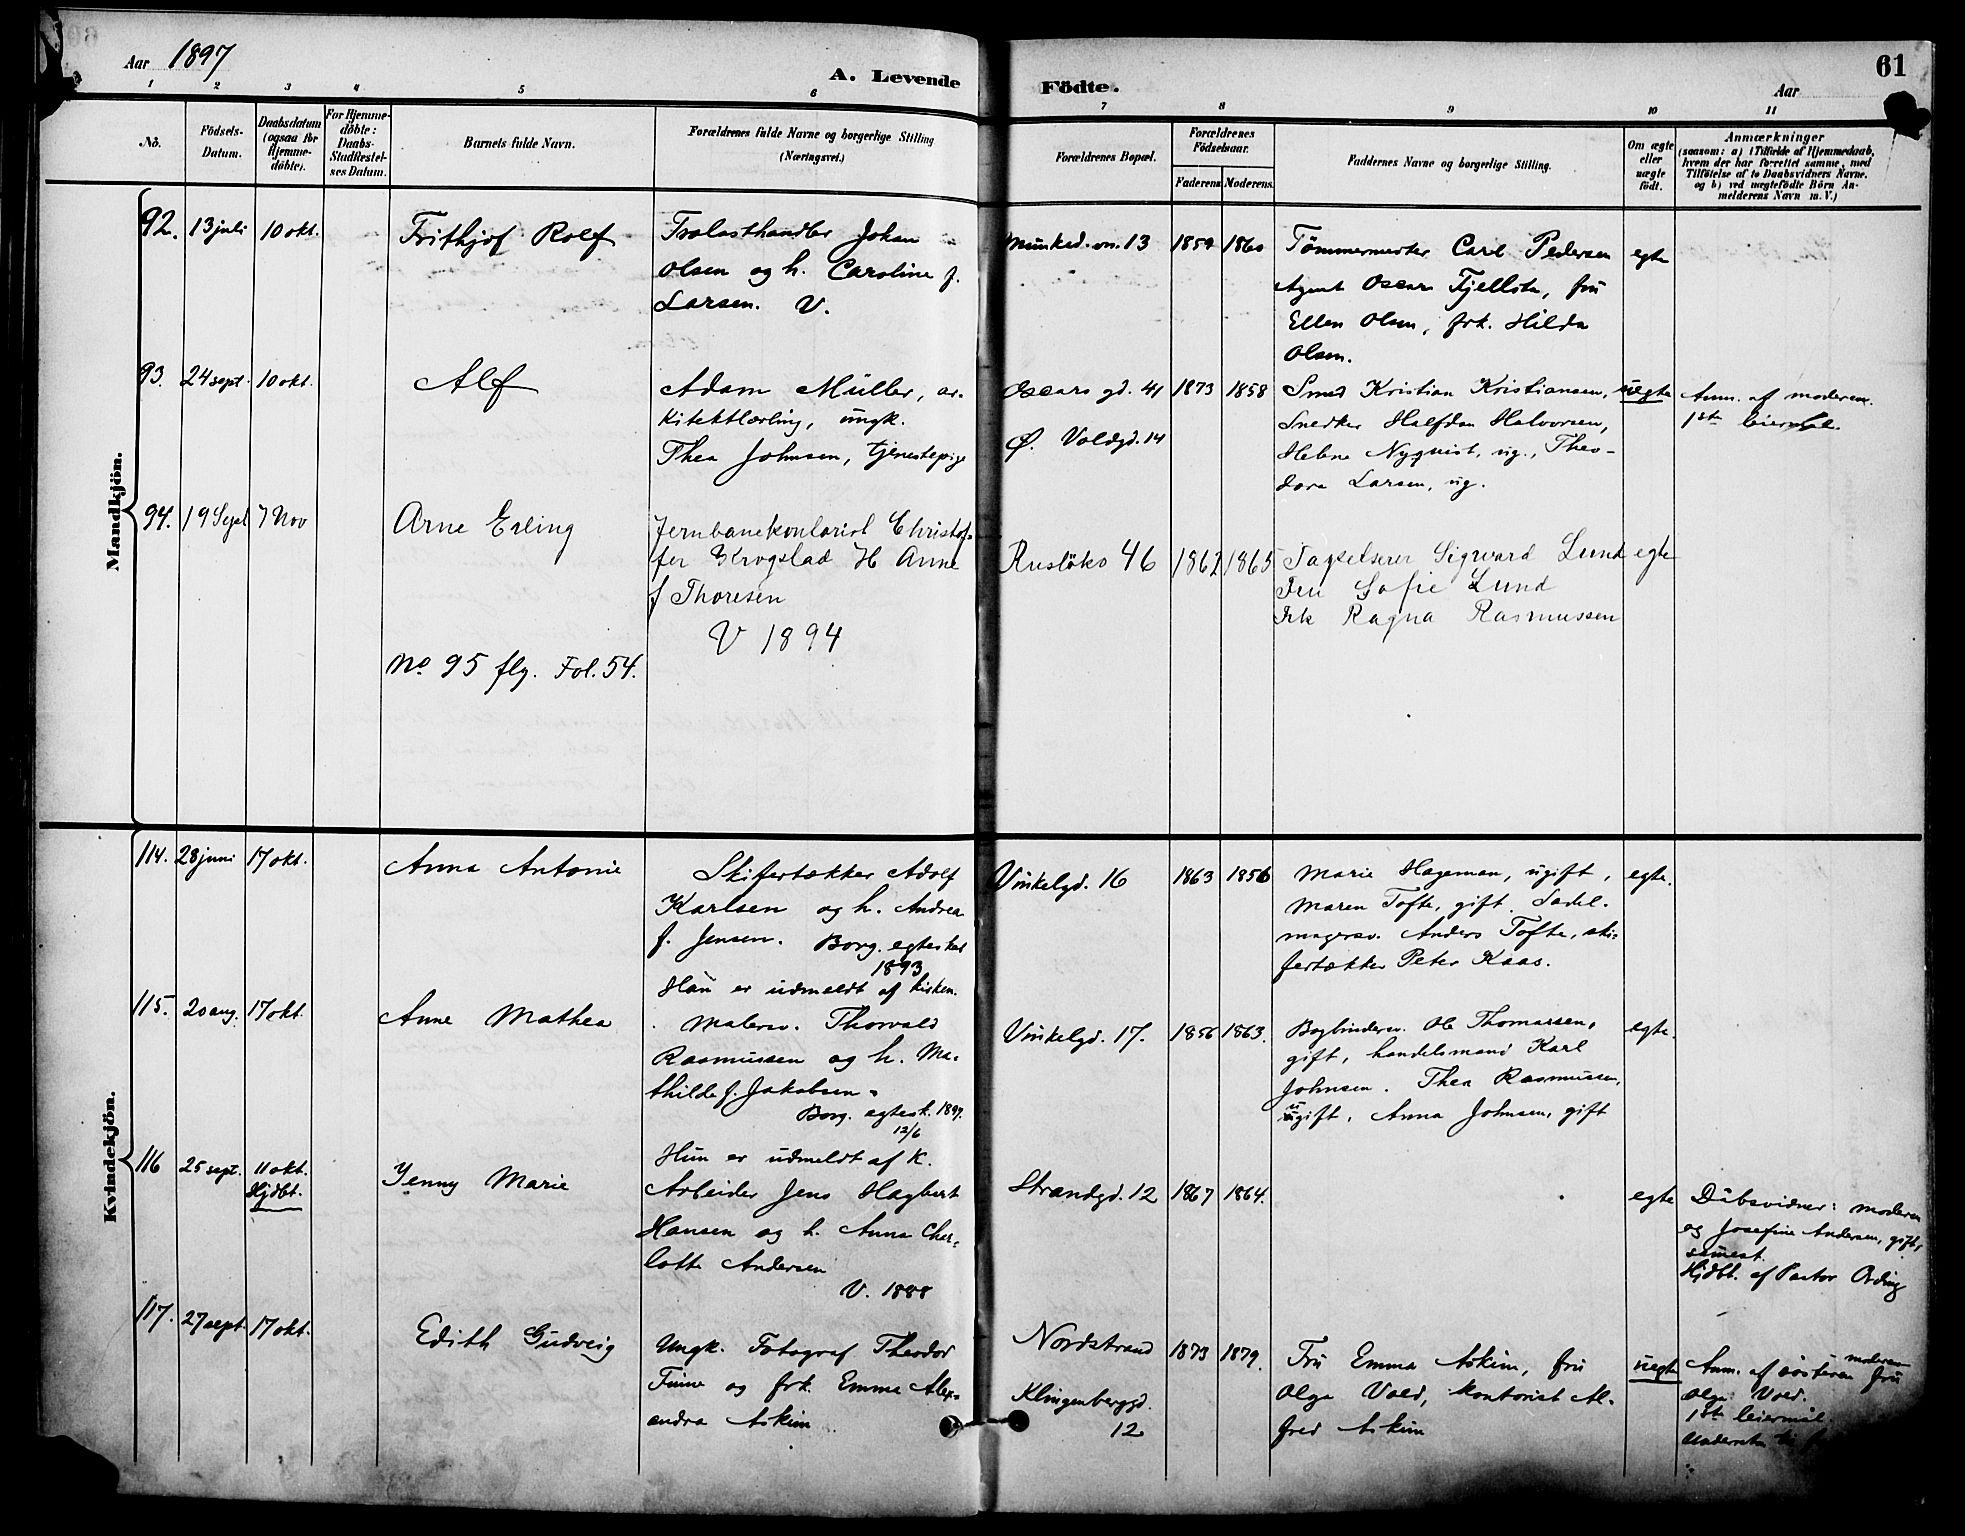 Aar 1897
A. Levende Födte.
Aar
61
1 2 3 4 5 6 7 8 9 10 11
No.
Födsels-
Datum.
Daabsdatum
(ogsaa for
Hjemme-
döbte).
For Hjemme-
döbte:
Daabs-
Stadfestel-
ses Datum.
Barnets fulde Navn.
Forældrenes fulde Navne og borgerlige Stilling
(Næringsvei.)
Forældrenes Bopæl.
Forældrenes
Födselsaar.
Faderens
Moderens
Faddernes Navne og borgerlige Stilling.
Om ægte
eller
uægte
födt.
Anmærkninger
(saasom: a) i Tilfælde af Hjemmedaab,
hvem der har forrettet samme, med
Tilföielse af to Daabsvidners Navne,
og b) ved uægtefödte Börn An-
melderens Navn m. V.)
Mandkjön.
92. 13 juli 10 okt. Frithjof Rolf
Trælasthandler Johan
Olsen og h. Caroline f.
Larsen. V.
Munked.vn. 13 1859 1860
Tömmermester Carl Pedersen
Agent Oscar Fjellstu, fru
Ellen Olsen, frk. Hilda
Olsen.
egte
93. 24 sept. 10 okt. Alf
Adam Müller, ar-
kitektlærling, ungk.
Thea Johnsen, tjenestepige
Oscars gd. 41
Ø. Voldgd. 14
1873 1858
Smed Kristian Kristiansen,
Snedker Halfdan Halvorsen,
Helene Nyquist, ug., Theo-
dora Larsen, ug.
uegte
Anm. af moderen.
1ste leiermål.
94. 19 Sept 7 Nov Arne Erling
Jernbanekontorist Christof-
fer Krogstad H Anne
f Thoresen
V 1894
Rusløko 46 1862 1865
Tapetserer Sigward Lund
Fru Sofie Lund
Frk Ragna Rasmussen
egte
No 95 flg. Fol. 54.
Kvindekjön.
114. 28 juni 17 okt. Anna Antonie
Skifertækker Adolf
Karlsen og h. Andrea
f. Jensen. Borg. egteskab
1893
Hun er udmeldt af kirken.
Vinkelgd. 16 1863 1856
Marie Hageman, ugift,
Maren Tofte, gift. Sadel-
magersv. Anders Tofte, ski-
fertækker Peter Kaas.
egte.
115. 20 aug. 17 okt. Anne Mathea
Malersv. Thorvald
Rasmussen og h. Ma-
thilde f. Jakobsen.
Borg. egtesk. 1897.
12/6
Hun er udmeldt af K.
Vinkelgd. 17. 1856 1863.
Bogbindersv. Ole Thomassen,
gift, handelsmand Karl
Johnsen. Thea Rasmussen,
ugift, Anna Johnsen, gift
egte.
116 25 sept. 11 okt.
Hjdbt.
Jenny Marie
Arbeider Jens Hagbert
Hansen og h. Anna Char-
lotte Andersen
V. 1888
Strandgd. 12 1867 1864.
egte
Dåbsvidner: moderen
og Josefine Andersen, gift,
Hjdbt. af Pastor Ording
117. 27 sept. 17 okt. Edith Gudveig
Ungk. Fotograf Theodor
Finne og frk. Emma Alex-
andra Askim
Nordstrand
Klingenberggd.
12
1873 1879.
Fru Emma Askim, fru
Olga Vold, kontorist Al-
fred Askim
uegte
Anm. af moderen søsteren fru
Olga Vold.
1ste leiermål.